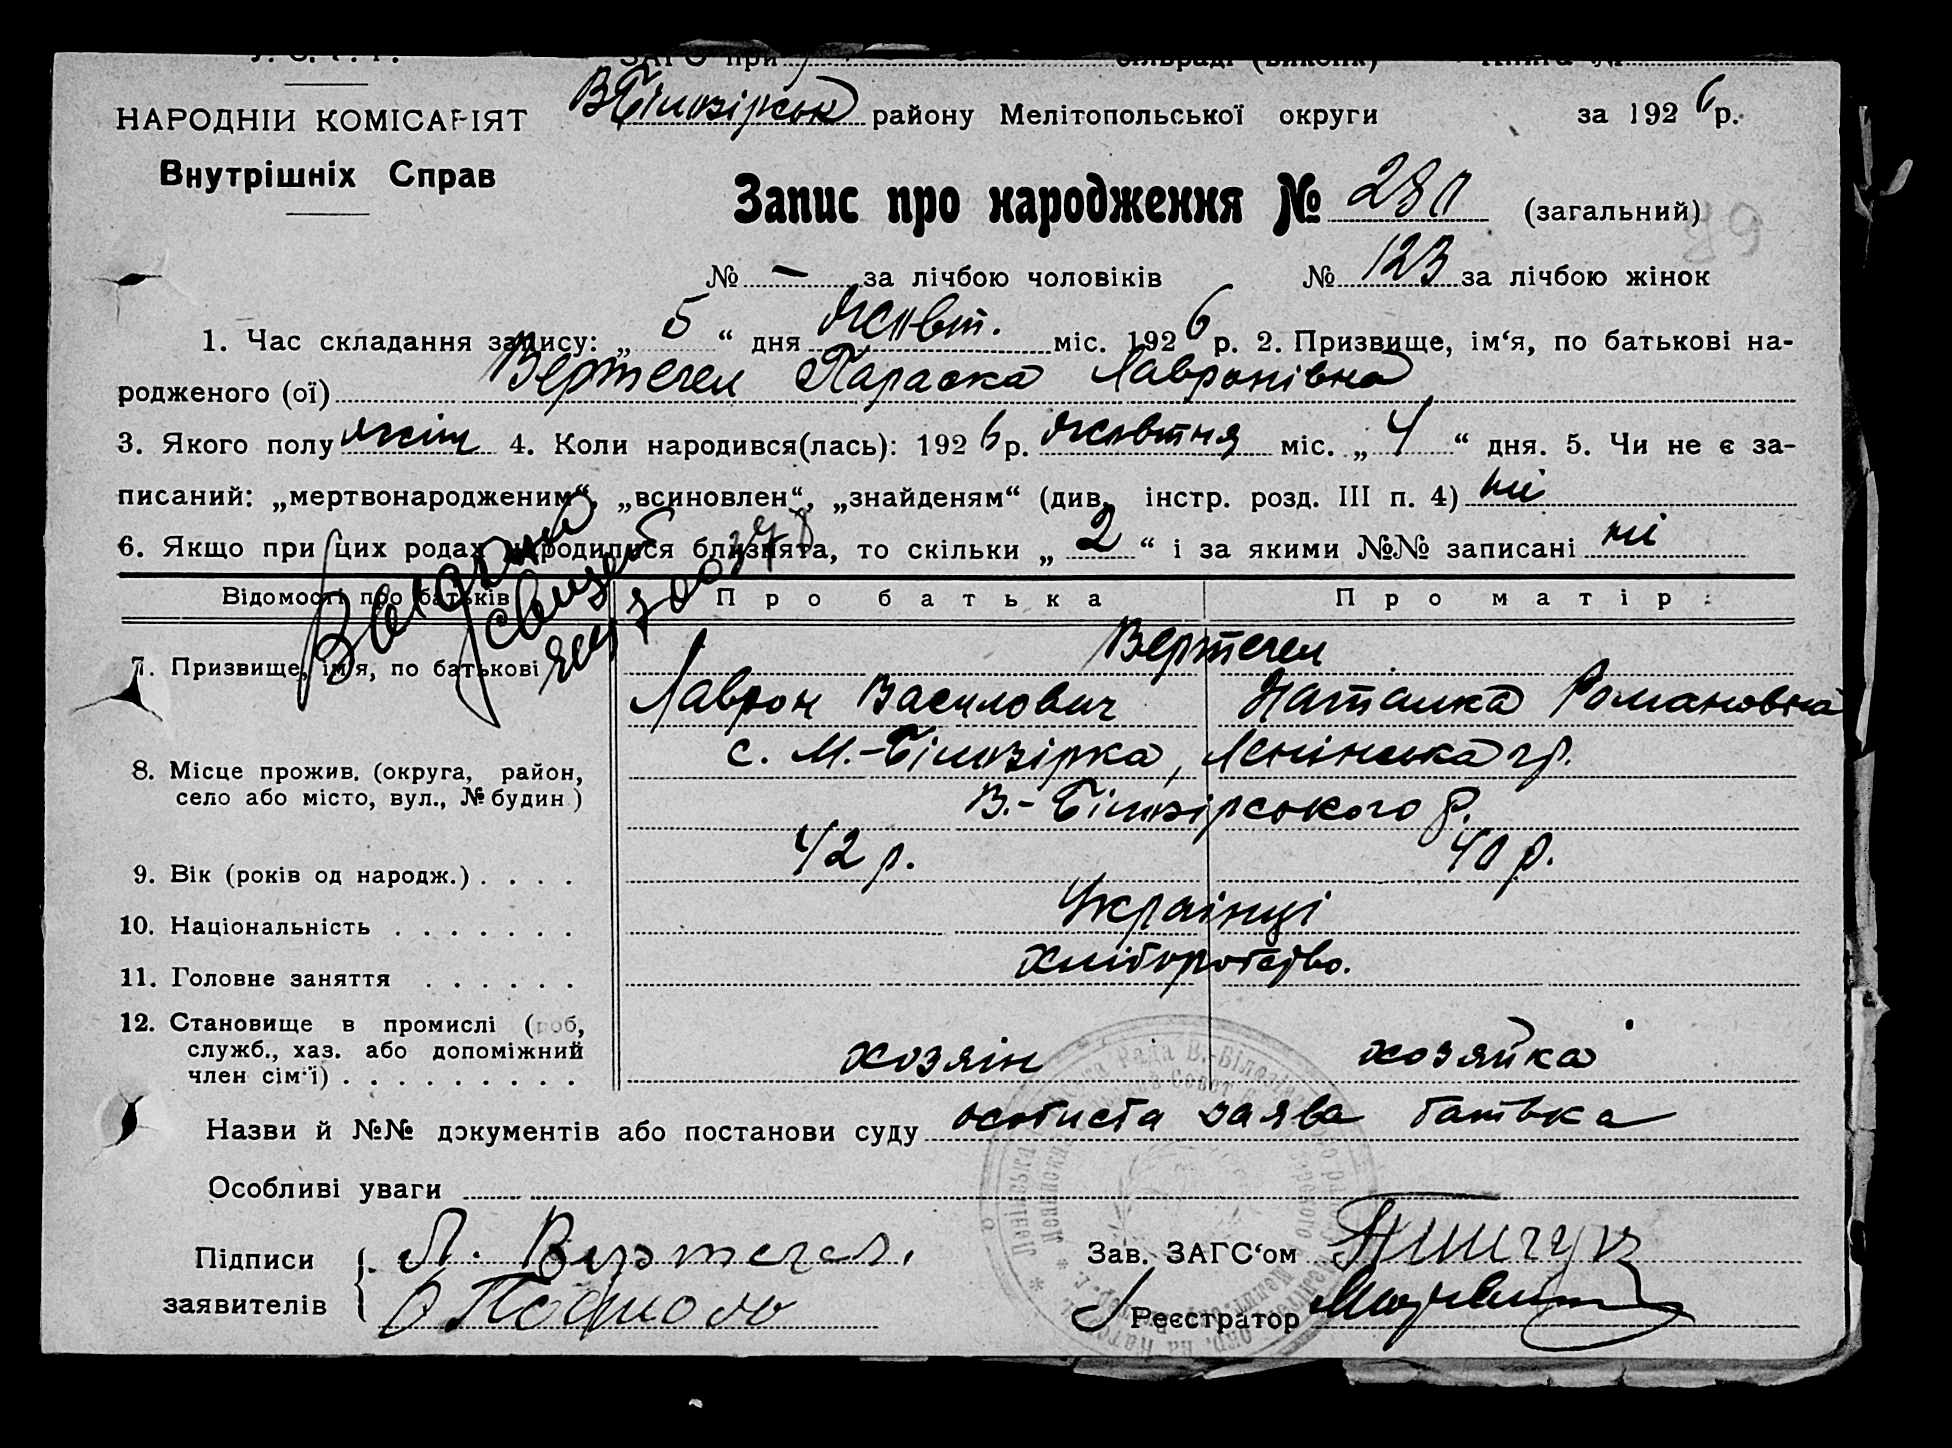 НАРОДНІЙ КОМІСАРІЯТ
Внутрішніх Справ
В.Білозірськ району Мелітопольської округи за 1926 р.
Запис про народження № (загальний)
№ — за лічбою чоловіків № 123 за лічбою жінок
1. Час складання запису: „5“ дня жовт. міс. 1926 р. 2. Призвище, ім‘я, по батькові на-
родженого (ої) Вертегел Параска Лавронівна
3. Якого полу жіш 4. Коли народився(лась): 1926 р. жовтня міс. „4“ дня. 5. Чи не є за-
писаний: „мертвонародженим“, „всиновлен“, „знайденям“ (див. інстр. розд. III п. 4) ні
6. Якщо при цих родах народилися близнята, то скільки „2“ і за якими №№ записані ні
Відомості про батьків Про батька Про матір
7. Призвище, ім‘я, по батькові Вертегел
Лаврон Василович Наталка Романовна
8. Місце прожив. (округа, район, с. М.-Білозірка, Ленінська гр.
село або місто, вул., № будин) В.-Білозірського р.
9. Вік (років од народж.) . . . . 42 р. 40 р.
10. Національність . . . . . . . Українці
11. Головне заняття . . . . . . Хліборобство.
12. Становище в промислі (роб,
служб., хаз. або допоміжний
член сім‘ї) . . . . . . . . . хозяін хозяйка
Назви й №№ документів або постанови суду особиста заява батька
Особливі уваги
Підписи Л. Вертегел. Зав. ЗАГС‘ом
заявителів Реєстратор